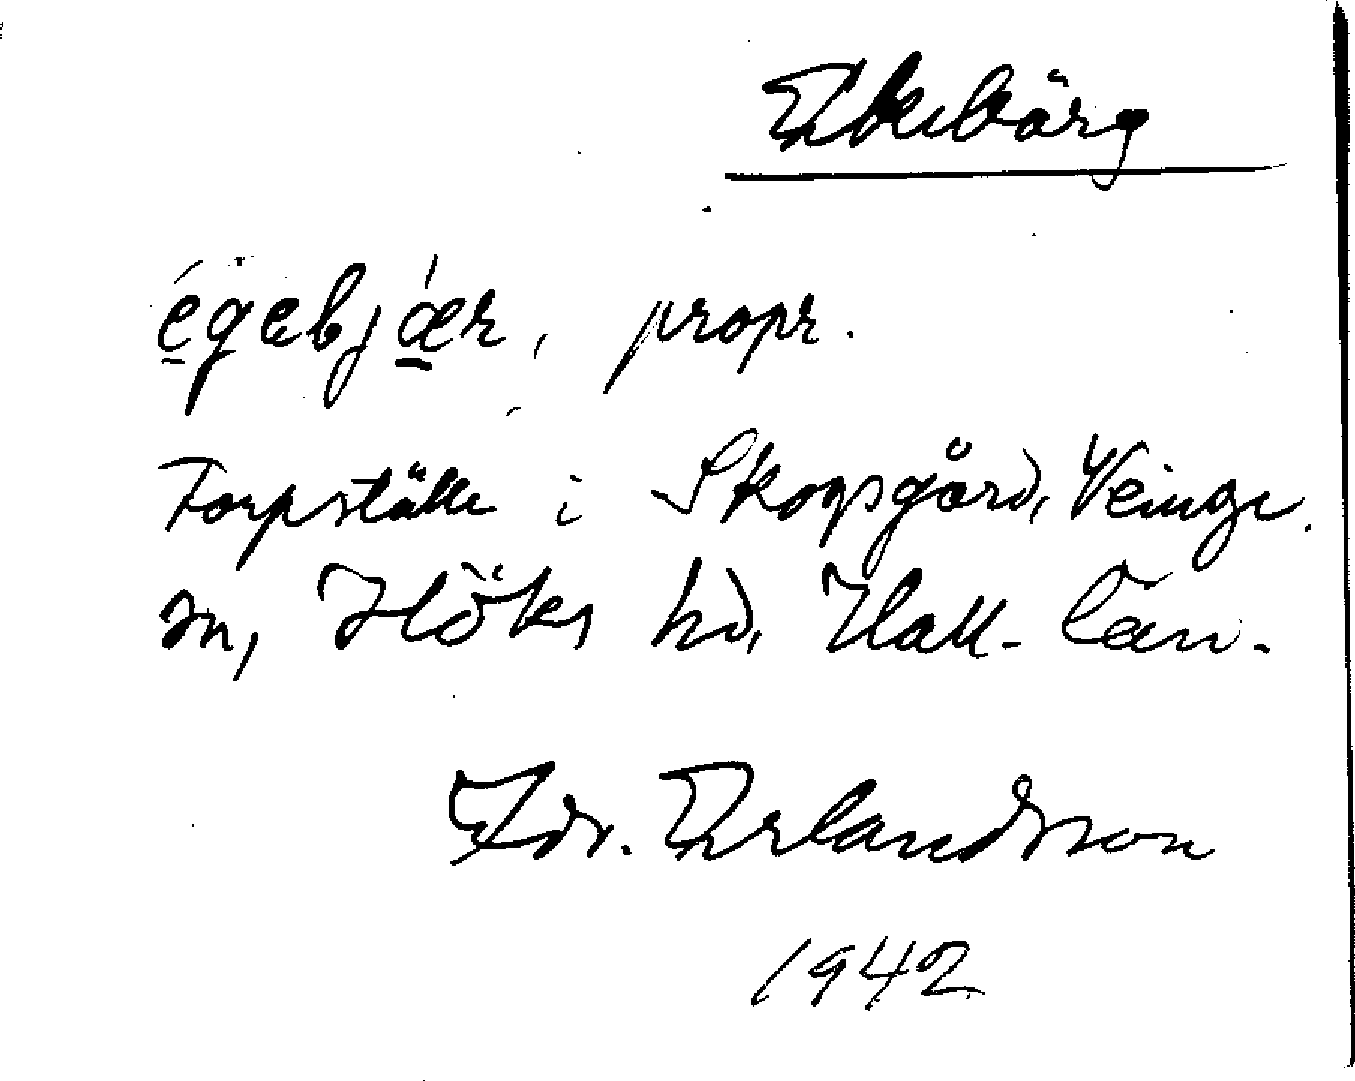 Ekebärg
égebjǽr, propr.
Torpställe i Skogsgård, Veinge
sn, Höks hd, Hall. län.
Fdr. Erlandsson
1942